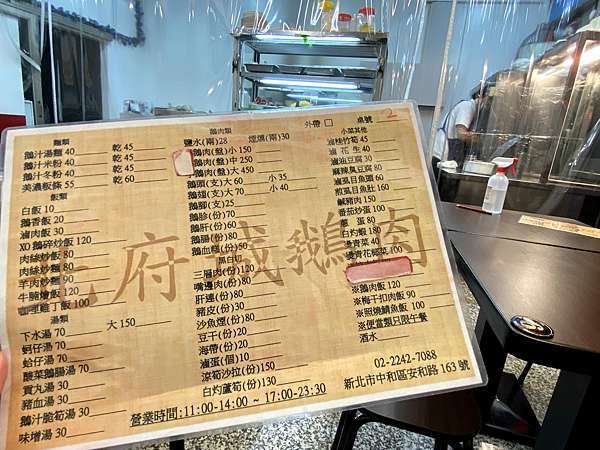 外帶 □ 桌號 2
麵類
鵝汁湯麵 40 乾 45
鵝汁米粉 40 乾 45
鵝汁冬粉 40 乾 45
美濃粄條 55 乾 60
飯類
白飯 10
鵝香飯 20
滷肉飯 30
XO鵝碎炒飯 120
肉絲炒飯 80
肉絲炒麵 80
羊肉炒麵 90
牛腩燴飯 120
咖哩雞丁飯 100
湯類
下水湯 70 大 150
蚵仔湯 70
蛤仔湯 70
酸菜鵝腸湯 70
貢丸湯 30
豬血湯 30
鵝汁脆筍湯 30
味增湯 30
鵝肉類
鹽水(兩)28 煙燻(兩)30
鵝肉(盤)小 150
鵝肉(盤)中 250
鵝肉(盤)大 450
鵝頭(支)大 60 小 35
鵝翅(支)大 70 小 40
鵝腳(支)25
鵝胗(份)70
鵝肝(份)60
鵝腸(份)80
鵝血糕(份)50
黑白切
三層肉(份)120
嘴邊肉(份)80
肝連(份)80
豬皮(份)30
沙魚煙(份)80
豆干(份)20
海帶(份)20
滷蛋(個)10
涼筍沙拉(份)150
白灼蘆筍(份)130
小菜其他
滷桂竹筍 45
滷花生 40
滷油豆腐 30
麻辣臭豆腐 80
滷虱目魚頭 60
煎虱目魚肚 160
鹹豬肉 150
番茄炒蛋 100
蔥蛋 80
白灼蝦 180
燙青菜 40
燙青花椰菜 100
※鵝肉飯 120
※梅干扣肉飯 90
※照燒鯖魚飯 90
※便當類只限午餐
酒水
府城鵝肉
02-2242-7088
新北市中和區安和路 163 號
營業時間:11:00-14:00 ~ 17:00-23:30